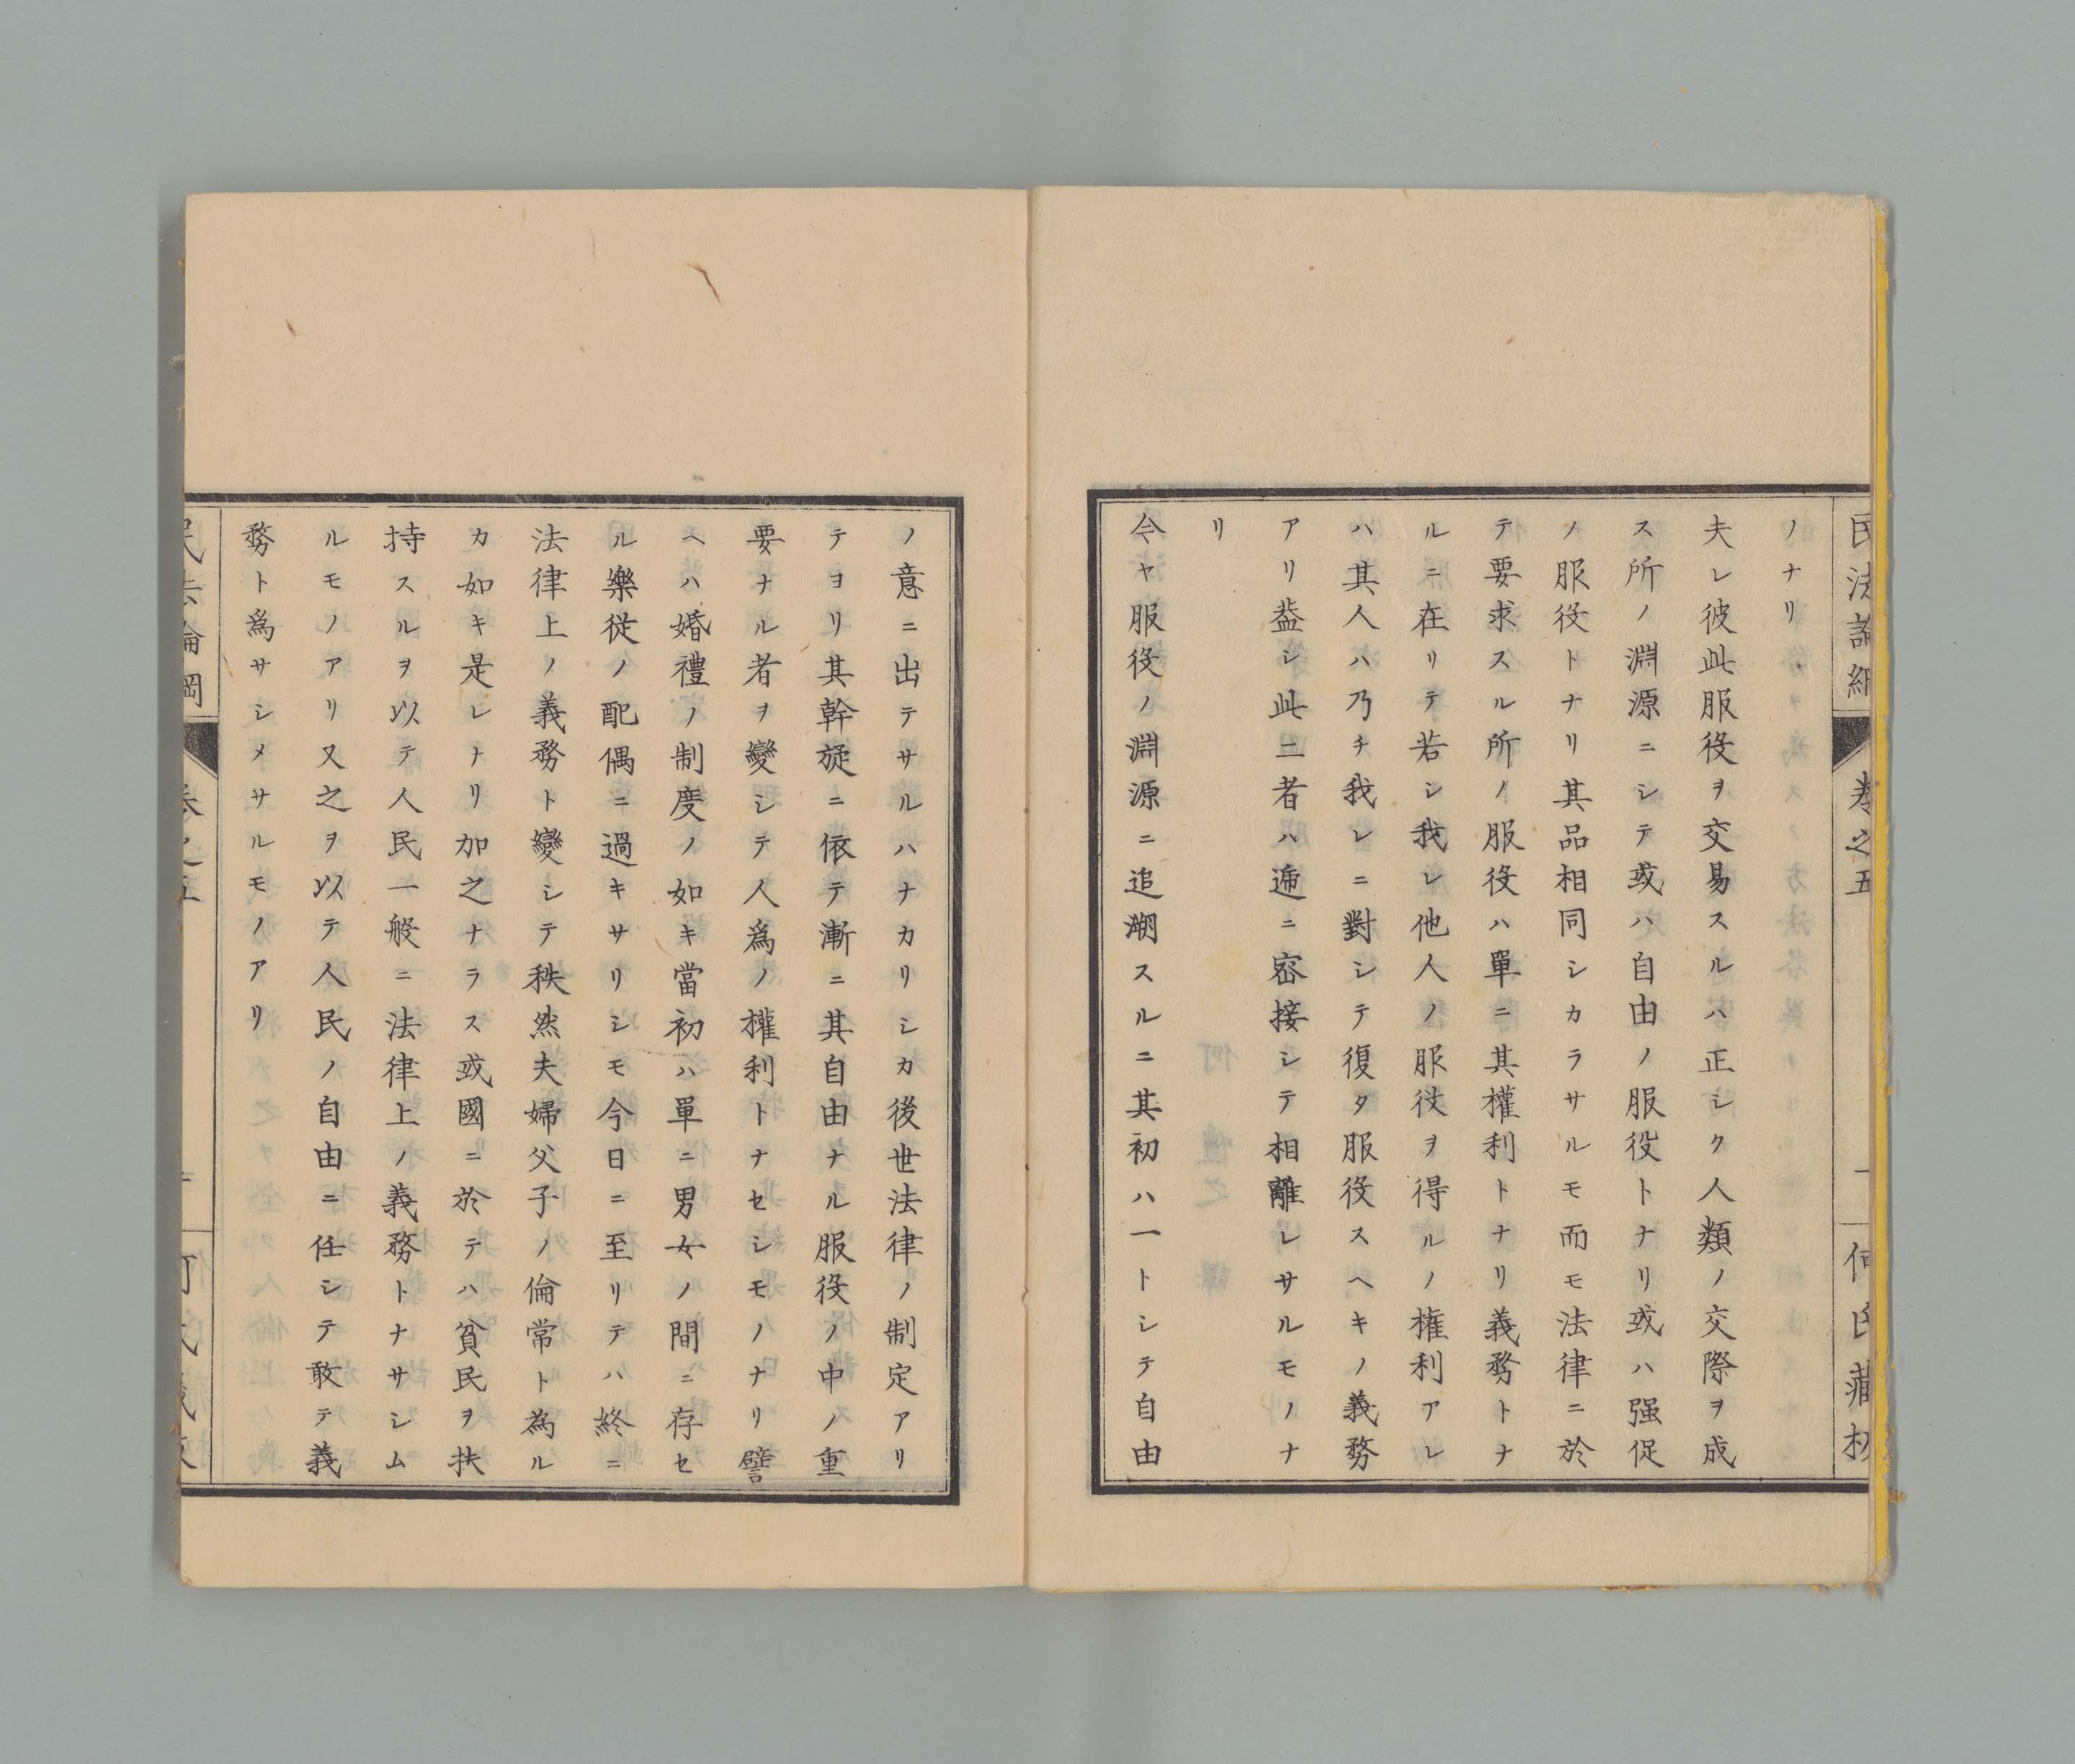 民法論綱
卷之五
一
何氏藏板
ノナリ
夫レ彼此服役ヲ交易スルハ正シク人類ノ交際ヲ成
ス所ノ淵源ニシテ或ハ自由ノ服役トナリ或ハ强促
ノ服役トナリ其品相同シカラサルモ而モ法律ニ於
テ要求スル所ノ服役ハ單ニ其權利トナリ義務トナ
ルニ在リテ若シ我レ他人ノ服役ヲ得ルノ權利アレ
ハ其人ハ乃チ我レニ對シテ復タ服役スヘキノ義務
アリ葢シ此二者ハ遞ニ密接シテ相離レサルモノナ
リ
今ヤ服役ノ淵源ニ追溯スルニ其初ハ一トシテ自由
ノ意ニ出テサルハナカリシカ後世法律ノ制定アリ
テヨリ其幹旋ニ依テ漸ニ其自由ナル服役ノ中ノ重
要ナル者ヲ變シテ人爲ノ權利トナセシモノナリ譬
ヘハ婚禮ノ制度ノ如キ當初ハ單ニ男女ノ間ニ存セ
ル樂從ノ配偶ニ過キサリシモ今日ニ至リテハ終ニ
法律上ノ義務ト變シテ秩然夫婦父子ノ倫常ト為ル
カ如キ是レナリ加之ナラス或國ニ於テハ貧民ヲ扶
持スルヲ以テ人民一般ニ法律上ノ義務トナサシム
ルモノアリ又之ヲ以テ人民ノ自由ニ任シテ敢テ義
務ト爲サシメサルモノアリ
民法論綱
卷之五
何氏藏板